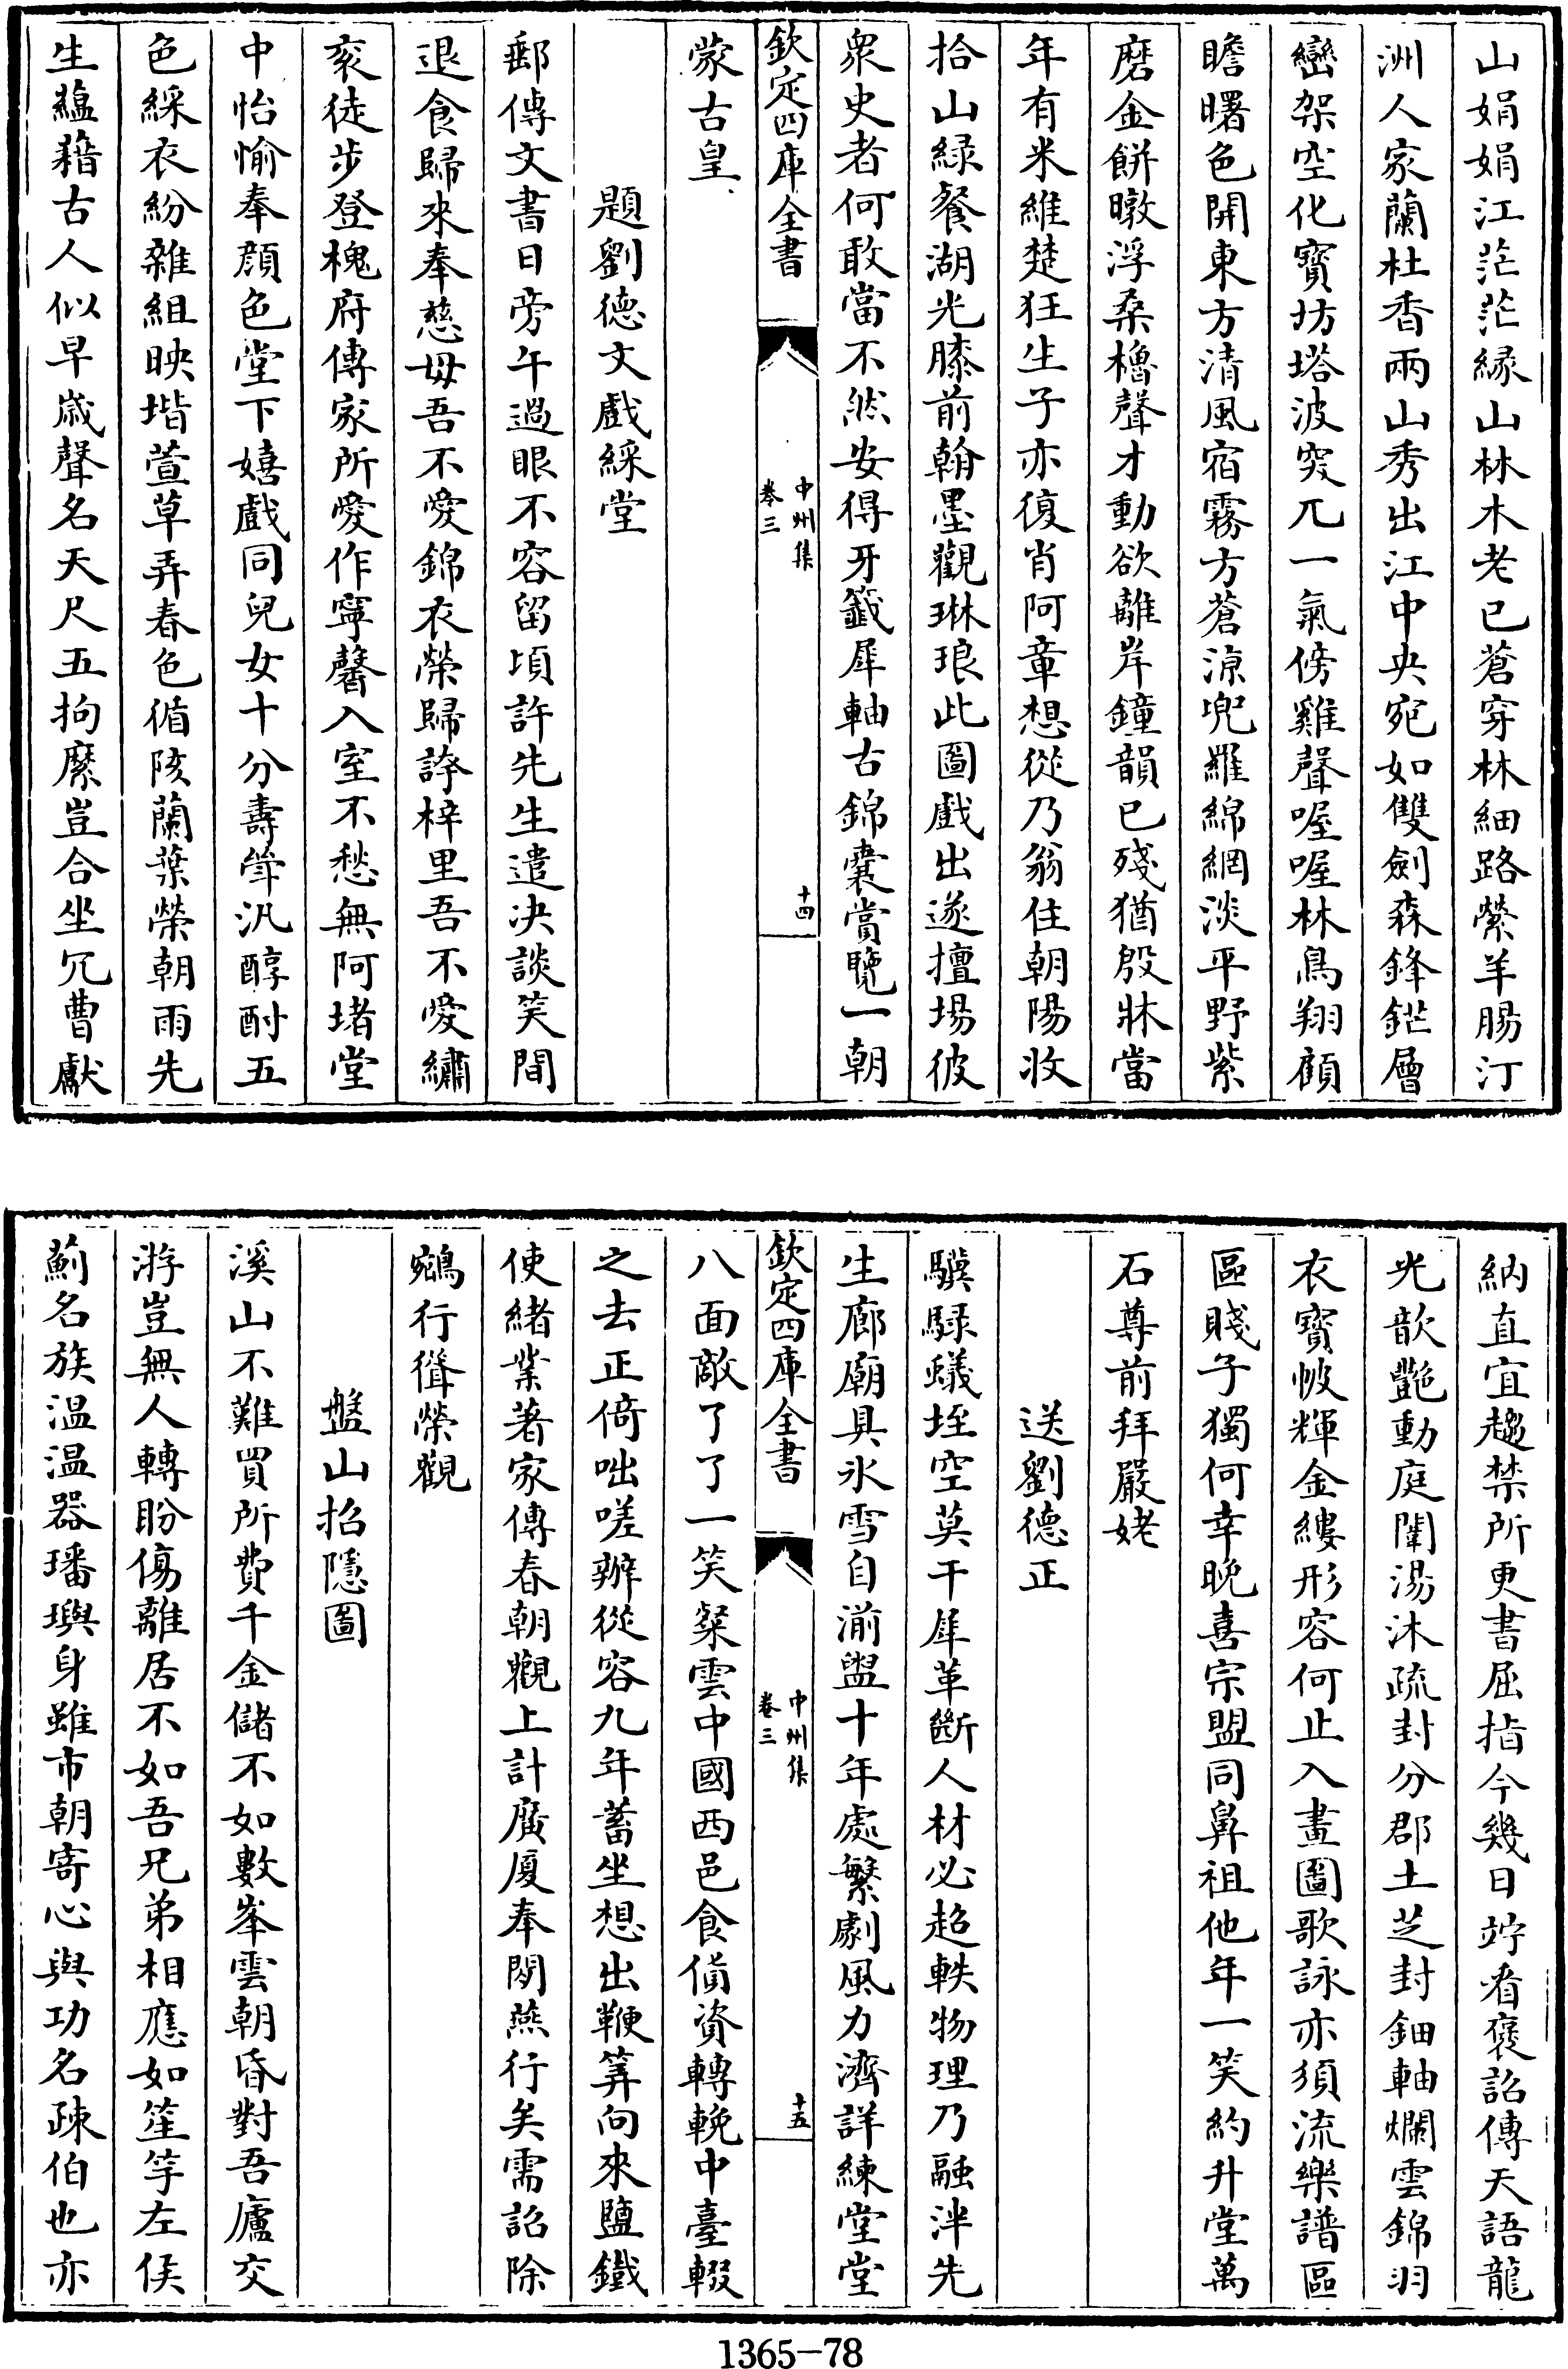 山娟娟江茫茫縁山林木老已蒼穿林細路縈羊腸汀
洲人家蘭杜香兩山秀出江中央宛如雙劍森鋒鋩層
巒架空化寳坊塔波突兀一氣傍雞聲喔喔林鳥翔顧
瞻曙色開東方清風宿霧方蒼涼兜羅綿網淡平野紫
磨金餅暾浮桑櫓聲才動欲離岸鐘韻已殘猶殷牀當
年有米維楚狂生子亦復肖阿章想從乃翁住朝陽收
拾山緑餐湖光膝前翰墨觀琳琅此圖戲出遂擅場彼
衆史者何敢當不然安得牙籤犀軸古錦囊賞覽一朝
欽定四庫全書
中州集
卷三
十四
蒙古皇
題劉德文戲綵堂
郵傳文書日旁午過眼不容留頃許先生遣决談笑間
退食歸來奉慈母吾不愛錦衣榮歸誇梓里吾不愛繡
衮徒步登槐府傳家所愛作寧馨入室不愁無阿堵堂
中怡愉奉顔色堂下嬉戲同兒女十分壽斝汎醇酎五
色綵衣紛雜組映堦萱草弄春色循陔蘭葉榮朝雨先
生藴藉古人似早歳聲名天尺五拘縻豈合坐冗曹獻
納直宜趨禁所更書屈指今幾日竚看褒詔傳天語龍
光歆艷動庭闈湯沐疏封分郡土芝封鈿軸爛雲錦羽
衣寳帔輝金縷形容何止入畫圖歌詠亦須流樂譜區
區賤子獨何幸晚喜宗盟同鼻祖他年一笑約升堂萬
石尊前拜嚴姥
送劉德正
驥騄蟻垤空莫干犀革斷人材必超軼物理乃融泮先
生廊廟具氷雪自湔盥十年處繁劇風力濟詳練堂堂
欽定四庫全書
中州集
卷三
十五
八面敵了了一笑粲雲中國西邑食貨資轉輓中臺輟
之去正倚咄嗟辦從容九年蓄坐想出鞭筭向來鹽鐵
使緒業著家傳春朝觀上計廣厦奉閒燕行矣需詔除
鵷行聳榮觀
盤山招隱圖
溪山不難買所費千金儲不如數峯雲朝昏對吾廬交
游豈無人轉盼傷離居不如吾兄弟相應如笙竽左侯
薊名族温温器璠璵身雖市朝寄心與功名疎伯也亦
1365-78